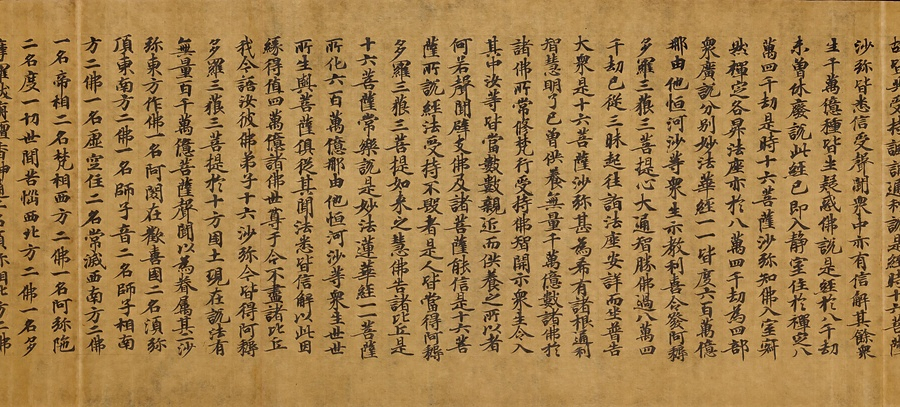 故皆共受持諷誦通利說是經時十六菩薩
沙弥皆悉信受聲聞眾中亦有信解其餘眾
生千萬億種皆生疑惑佛說是經於八千劫
未曾休廢說此經已即入靜室住於禪定八
萬四千劫是時十六菩薩沙弥知佛入室寂
然禪定各昇法座亦於八萬四千劫為四部
眾廣說分別妙法華經一一皆度六百萬億
那由他恒河沙等眾生示教利喜令發阿耨
多羅三藐三菩提心大通智勝佛過八萬四
千劫已從三昧起往詣法座安詳而坐普告
大眾是十六菩薩沙弥甚為希有諸根通利
智慧明了已曾供養無量千萬億數諸佛於
諸佛所常修梵行受持佛智開示眾生令入
其中汝等皆當數數親近而供養之所以者
何若聲聞辟支佛及諸菩薩能信是十六菩
薩所說經法受持不毀者是人皆當得阿耨
多羅三藐三菩提如來之慧佛告諸比丘是
十六菩薩常樂說是妙法蓮華經一一菩薩
所化六百萬億那由他恒河沙等眾生世世
所生與菩薩俱從其聞法悉皆信解以此因
緣得值四萬億諸佛世尊于今不盡諸比丘
我今語汝彼佛弟子十六沙弥今皆得阿耨
多羅三藐三菩提於十方國土現在說法有
無量百千萬億菩薩聲聞以為眷屬其二沙
弥東方作佛一名阿閦在歡喜國二名須弥
頂東南方二佛一名師子音二名師子相南
方二佛一名虛空住二名常滅西南方二佛
一名帝相二名梵相西方二佛一名阿弥陁
二名度一切世間苦惱西北方二佛一名多
摩羅跋栴檀香神通二名須弥相北方二佛